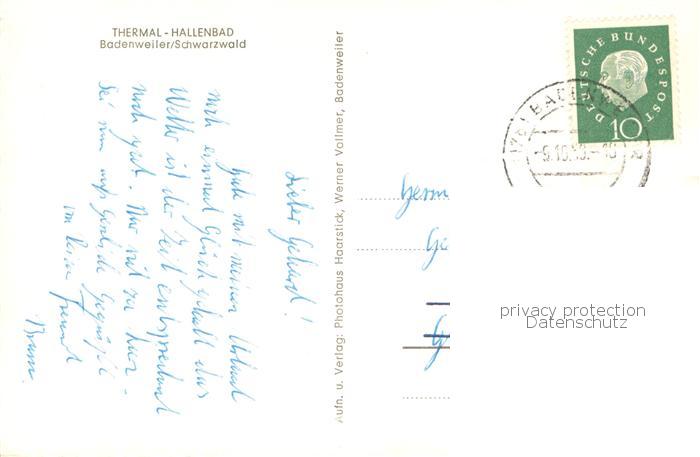 THERMAL - HALLENBAD
Badenweiler/Schwarzwald
Lieber Gebhard!
Habe mit meinem Urlaub
noch einmal Glück gehabt das
Wetter ist der Zeit entsprechend
noch gut. Nur viel zu kurz.
Sei nun aufs herzlichste gegrüßt
von Deinem Freund
Bruno.
Aufn. u. Verlag: Photohaus Haarstick, Werner Vollmer, Badenweiler
DEUTSCHE BUNDESPOST
10
BADENW
Herrn
privacy protection
Datenschutz